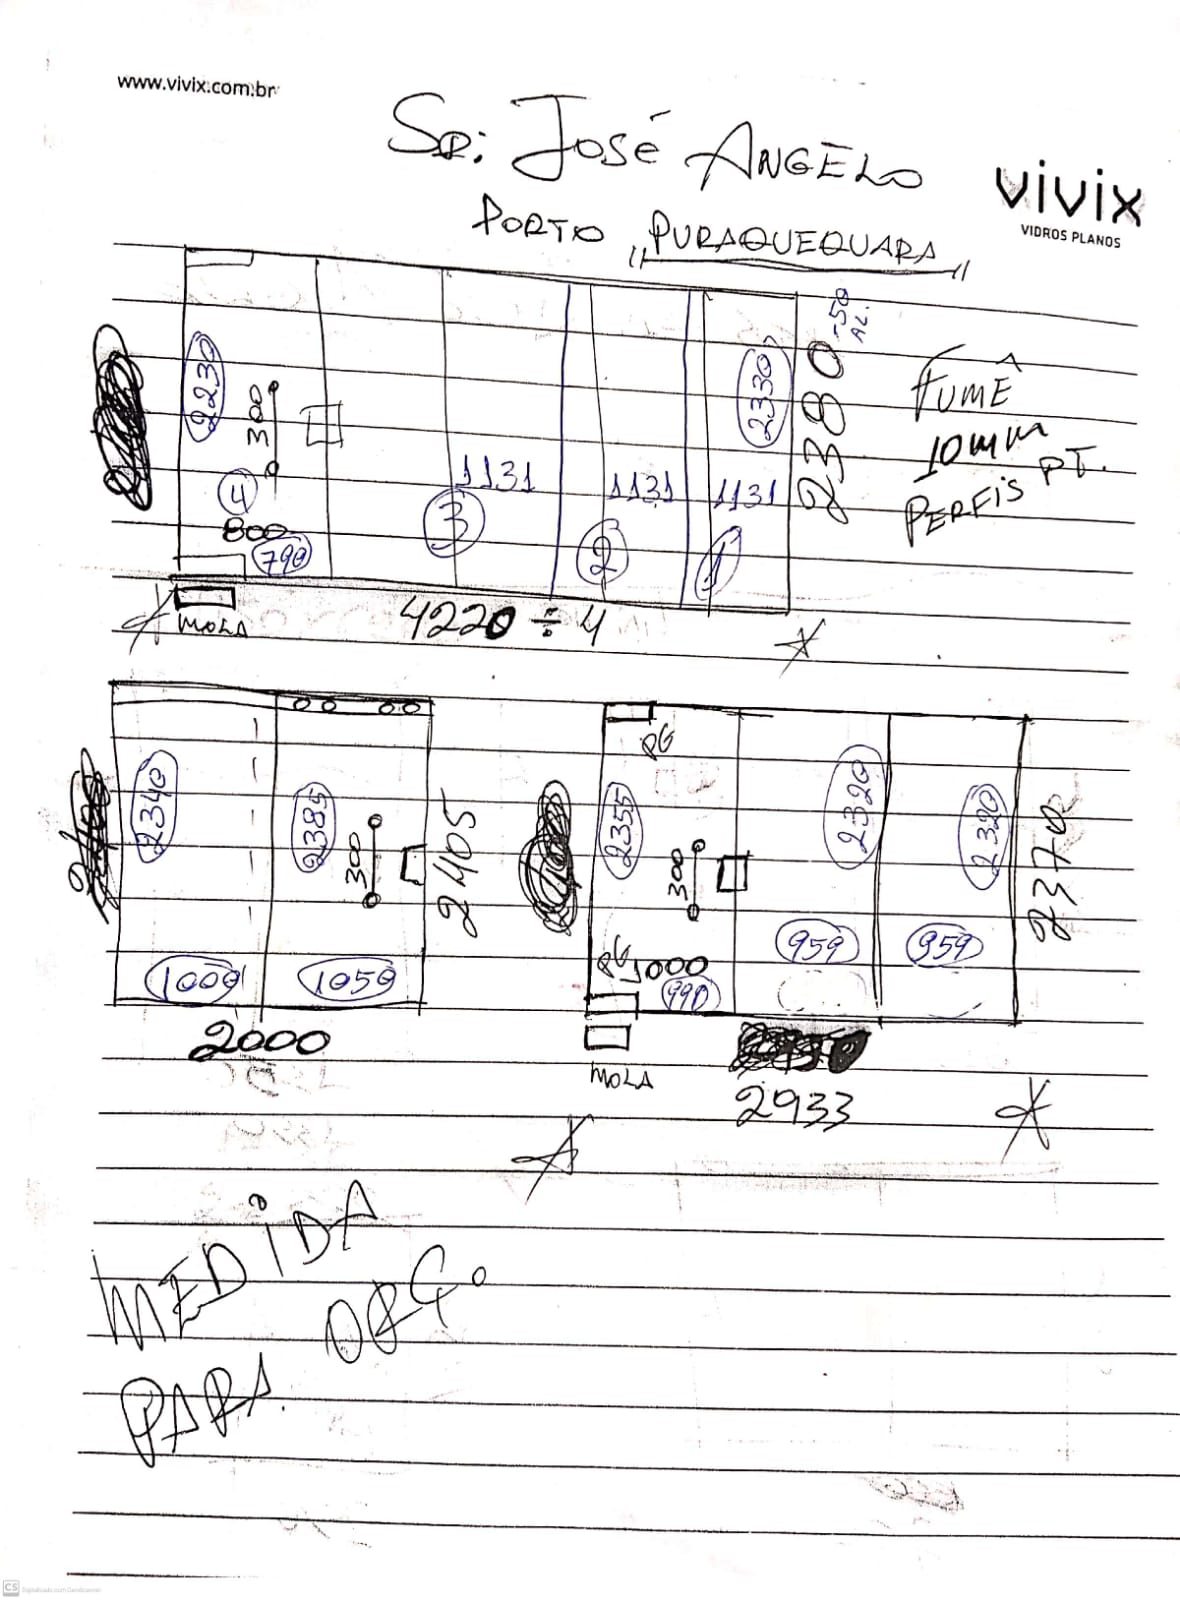 www.vivix.com.br
SR: JOSÉ ANGELO
vivix
VIDROS PLANOS
PORTO "PURAQUEQUARA"
2230
300
4
800
790
3
1131
2
1131
1
1131
2330
2380
-50
AL.
FUMÊ
10mm
PERFIS PT.
MOLA
4220 ÷ 4
2340
2385
300
2405
1000
1050
2000
PG
2355
300
PG
1000
990
2320
2320
959
959
2370
MOLA
2933
MEDIDA
PARA ORÇO
CS Digitalizado com CamScanner